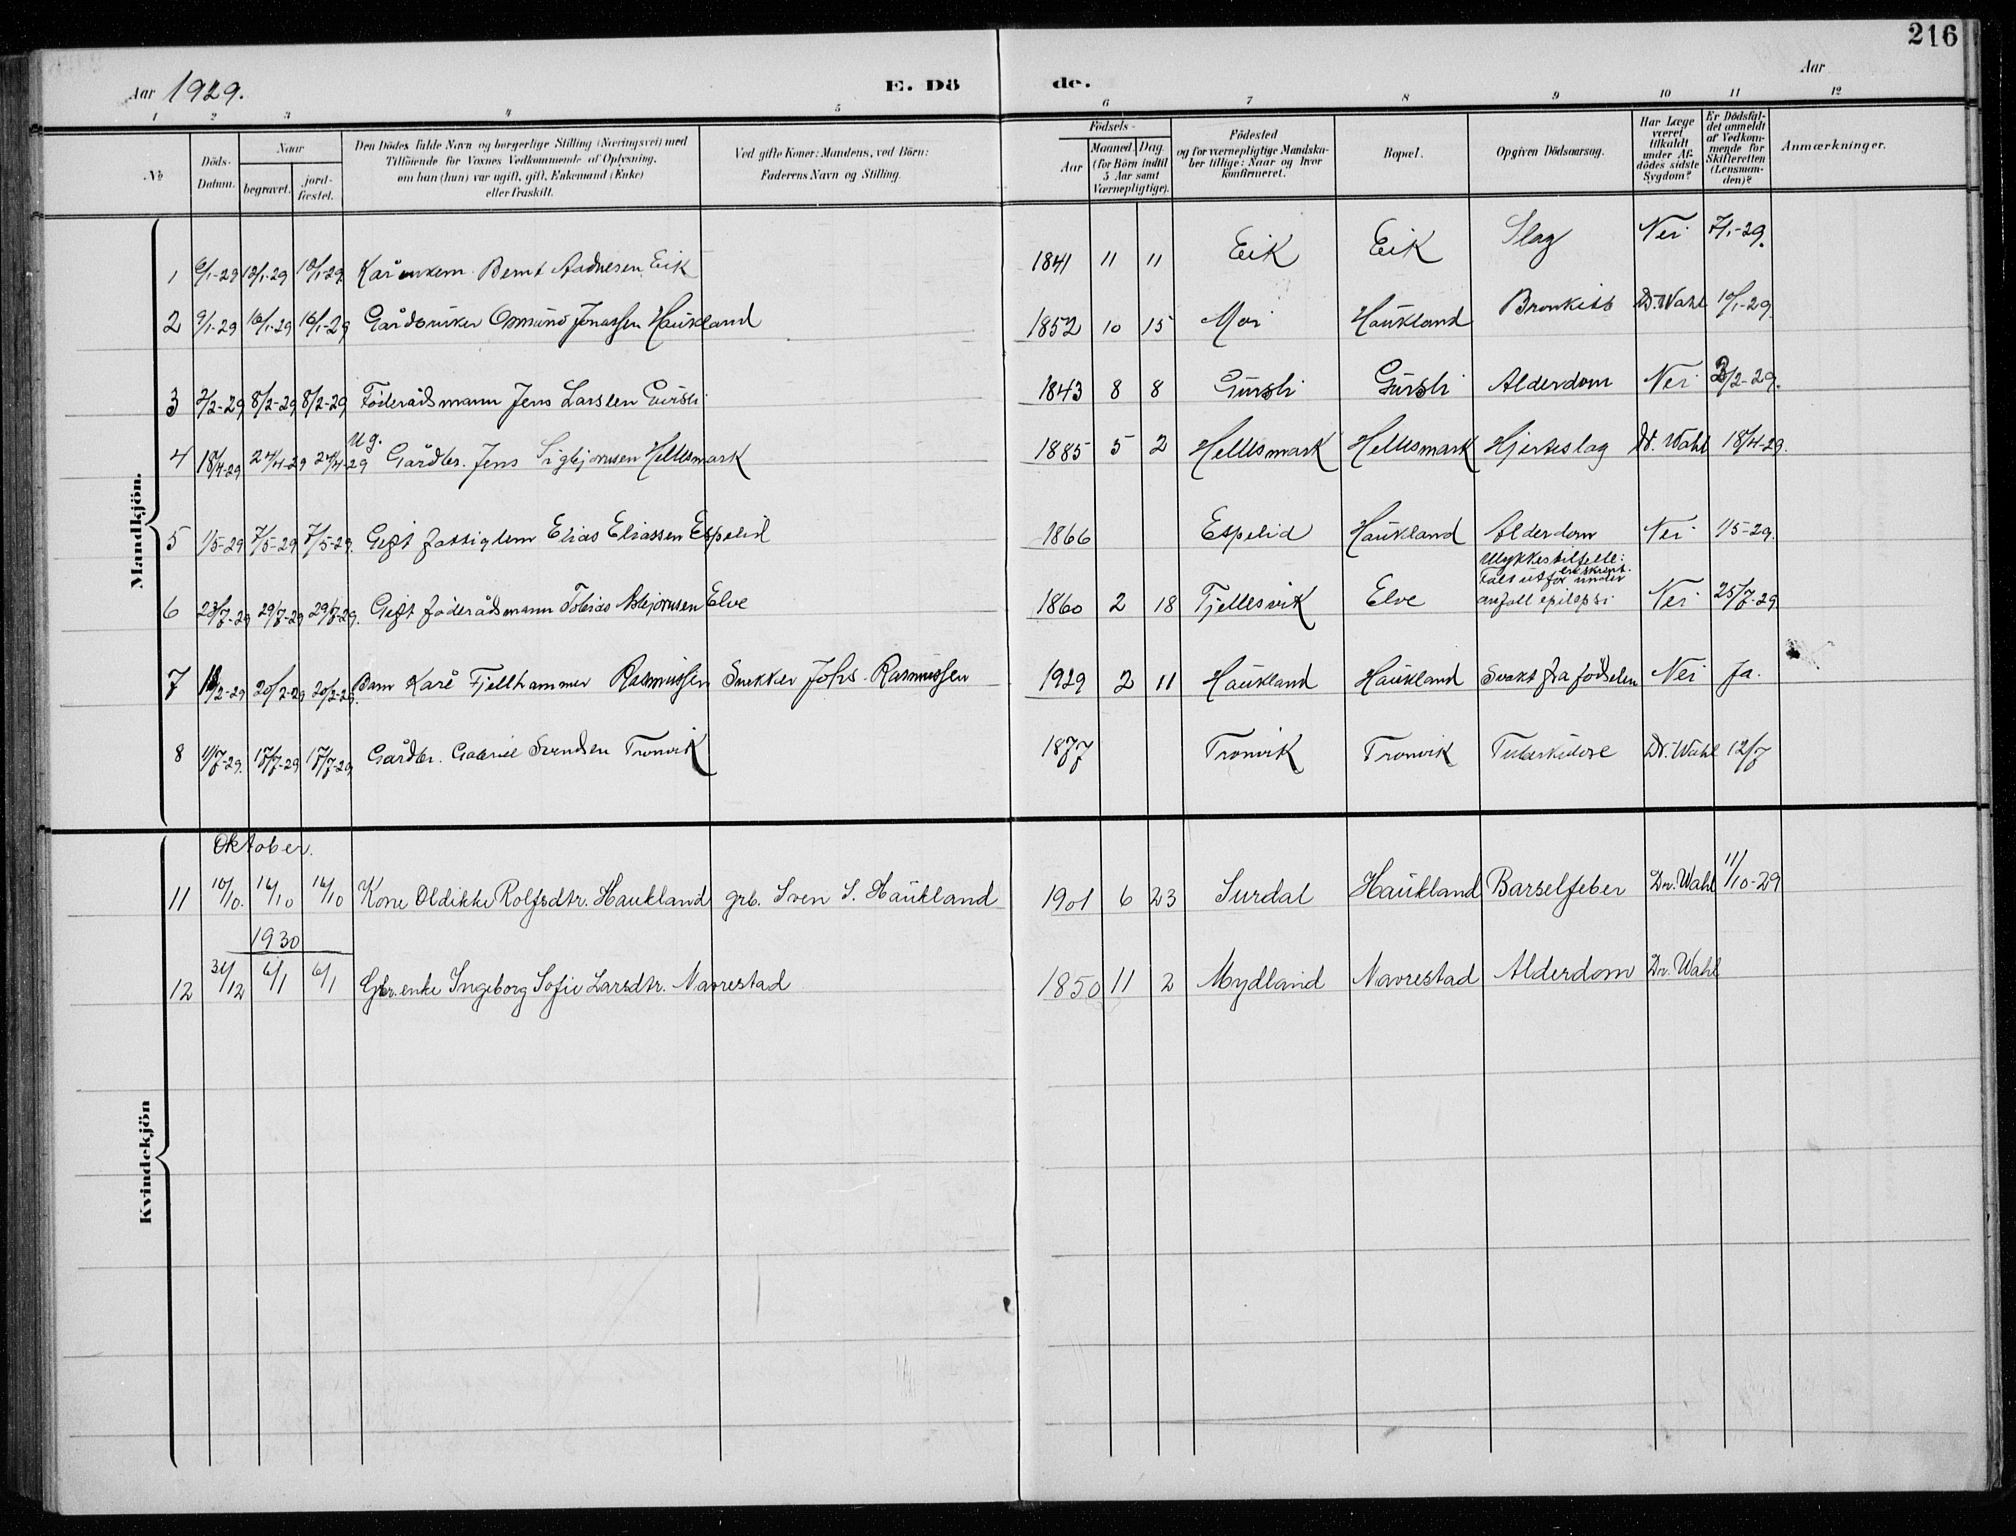 216
Aar 1929. E. Dö de. Aar
1 2 3 4 5 6 7 8 9 10 11 12
No
Döds-Datum.
Naar begravet. jord-fæstet.
Den Dödes fulde Navn og borgerlige Stilling (Næringsvei) med Tilföiende for Voxnes Vedkommende af Oplysning, om han (hun) var ugift, gift, Enkemand (Enke) eller fraskilt.
Ved gifte Koner: Mandens, ved Börn: Faderens Navn og Stilling.
Födsels- Aar Maaned Dag. (for Börn indtil 5 Aar samt Værnepligtige).
Födested og for værnepligtige Mandskaber tillige: Naar og hvor konfirmeret.
Bopæl.
Opgiven Dödsaarsag.
Har Læge været tilkaldt under Afdödes sidste Sygdom?
Er Dödsfaldet anmeldt af Vedkommende for Skifteretten (Lensmanden)?
Anmærkninger.
Mandkjön.
1 6/1-29 12/1-29 12/1-29 Kårenkem. Bernt Aadnesen Eik 1841 11 11 Eik Eik Slag Nei 7/1-29.
2 9/1-29 16/1-29 16/1-29 Gårdbruker Osmund Jonassen Haukland 1852 10 15 Moi Haukland Bronkitt Dr. Wahl 10/1-29.
3 2/2-29 8/2-29 8/2-29 Föderådsmann Jens Larsen Gursli 1843 8 8 Gursli Gursli Alderdom Nei 2/2-29.
4 18/4-29 24/4-29 24/4-29 Ug. Gårdbr. Jens Sigbjørnsen Hellesmark 1885 5 2 Hellesmark Hellesmark Hjerteslag Dr. Wahl 18/4-29.
5 1/5-29 7/5-29 7/5-29. Gift fattiglem Elias Eliassen Espelid 1866 Espelid Haukland Alderdom Nei 1/5-29.
6 23/7-29 29/7-29 29/7-29. Gift föderådsmann Tobias Asbjørnsen Elve 1860 2 18 Tjellesvik Elve Ulykkestilfelle: Falt utfor en skrent under anfall epilepsi Nei 25/7-29
7 11/2-29 20/2-29 20/2-29. Barn Kåre Fjellhammer Rasmussen Snekker Johs. Rasmussen 1929 2 11 Haukland Haukland Svakt fra fødselen Nei Ja.
8 11/7-29. 18/7-29 18/7-29 Gårdbr. Gabriel Svendsen Tronvik 1877 Tronvik Tronvik Tuberkulose Dr. Wahl 12/7
Kvindekjön
Oktober.
11 10/10. 16/10 16/10 Kone Oldikke Rolfsdtr. Haukland grb. Sven S. Haukland 1901 6 23 Surdal Haukland Barselfeber Dr. Wahl 11/10-29
1930
12 31/12 6/1 6/1 Gbr. enke Ingeborg Sofie Larsdtr. Navrestad 1850 11 2 Mydland Navrestad Alderdom Dr. Wahl